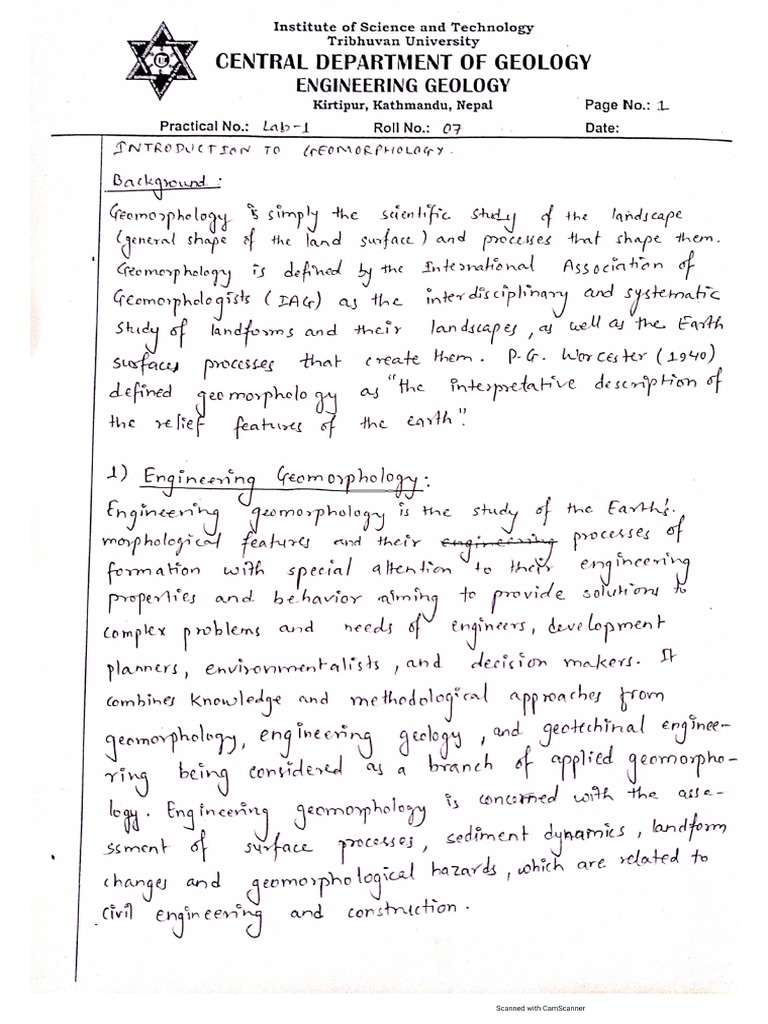 Institute of Science and Technology
Tribhuvan University
CENTRAL DEPARTMENT OF GEOLOGY
ENGINEERING GEOLOGY
Kirtipur, Kathmandu, Nepal
Page No.: 1
Practical No.: Lab-1 Roll No.: 07 Date:
INTRODUCTION TO GEOMORPHOLOGY.
Background:
Geomorphology is simply the scientific study of the landscape
(general shape of the land surface) and processes that shape them.
Geomorphology is defined by the International Association of
Geomorphologists (IAG) as the interdisciplinary and systematic
study of landforms and their landscapes, as well as the Earth
surfaces processes that create them. P.G. Worcester (1940)
defined geomorphology as "the interpretative description of
the relief features of the earth".
1) Engineering Geomorphology:
Engineering geomorphology is the study of the Earth's.
morphological features and their engineering processes of
formation with special attention to their engineering
properties and behavior aiming to provide solutions to
complex problems and needs of engineers, development
planners, environmentalists, and decision makers. It
combines knowledge and methodological approaches from
geomorphology, engineering geology, and geotechinal enginee-
ring being considered as a branch of applied geomorpho-
logy. Engineering geomorphology is concerned with the asse-
ssment of surface processes, sediment dynamics, landform
changes and geomorphological hazards, which are related to
civil engineering and construction.
Scanned with CamScanner